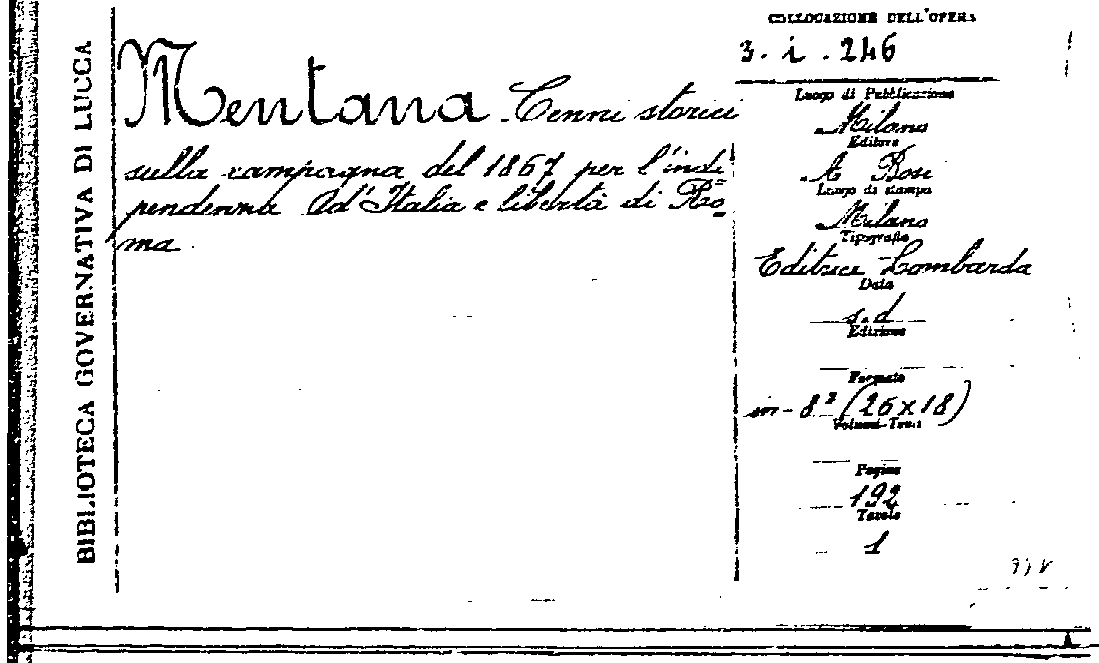 BIBLIOTECA GOVERNATIVA DI LUCCA
Mentana Cenni storici
sulla campagna del 1867 per l'indi=
pendenna d'Italia e libertà di Ro=
ma.
COLLOCAZIONE DELL'OPERA
3. i. 246
Luogo di Pubblicazione
Milano
Editore
Luogo di stampa
Milano
Tipografia
Editrice Lombarda
Data
s.d
Edizione
Formato
in-8º (26x18)
Volumi-Tomi
Pagine
192
Tavole
1